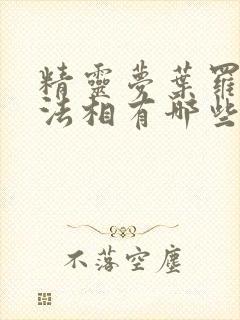 精靈夢葉羅
法相有哪些
不落空塵